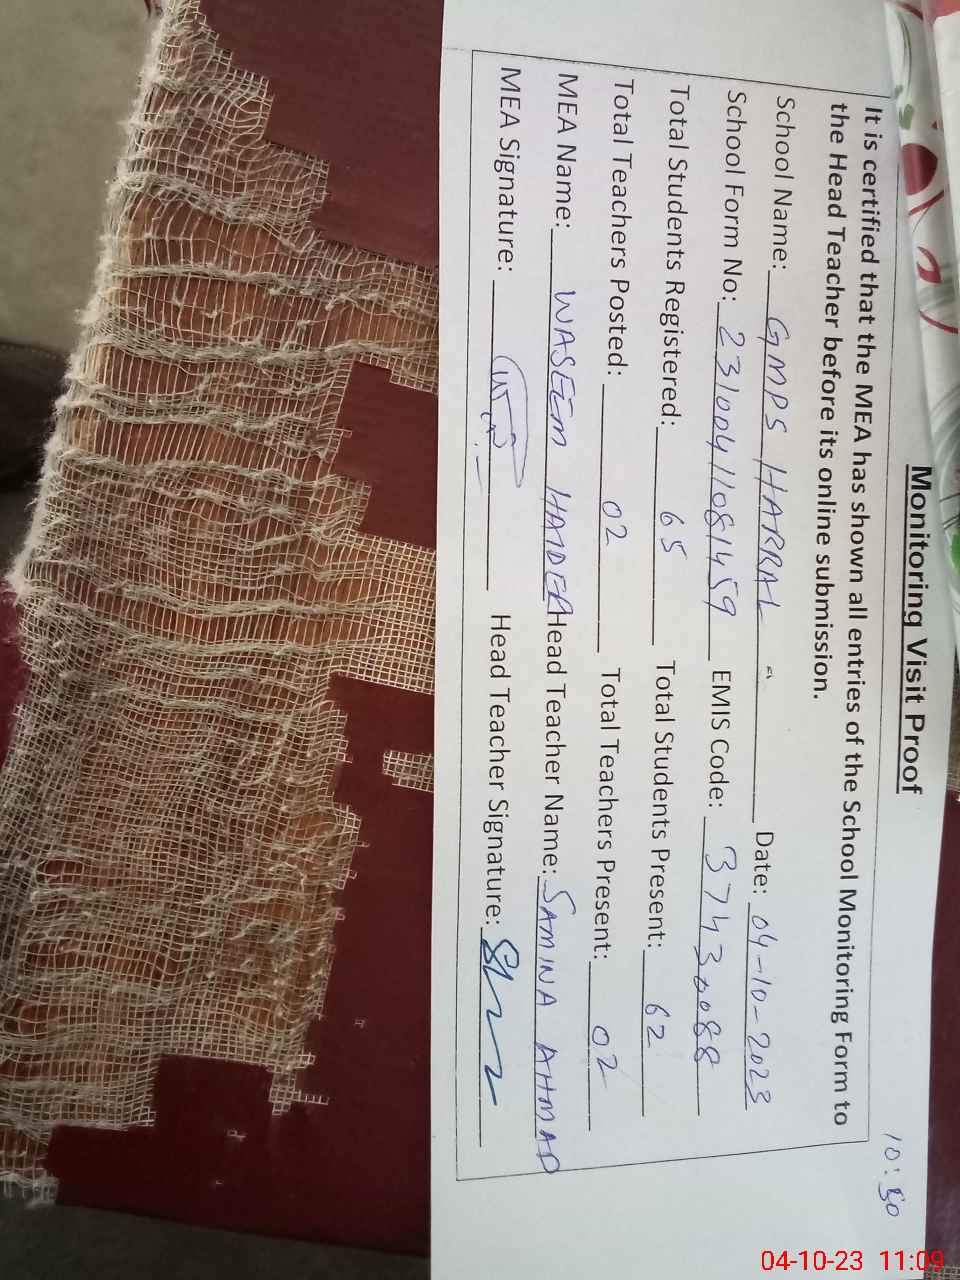 Monitoring Visit Proof
10:50
It is certified that the MEA has shown all entries of the School Monitoring Form to
the Head Teacher before its online submission.
School Name: GMPS HARRAL Date: 04-10-2023
School Form No: 23100411081459 EMIS Code: 37430088
Total Students Registered: 65 Total Students Present: 62
Total Teachers Posted: 02 Total Teachers Present: 02
MEA Name: WASEEM HAIDER Head Teacher Name: SAMINA AHMAD
MEA Signature: Head Teacher Signature:
04-10-23 11:09